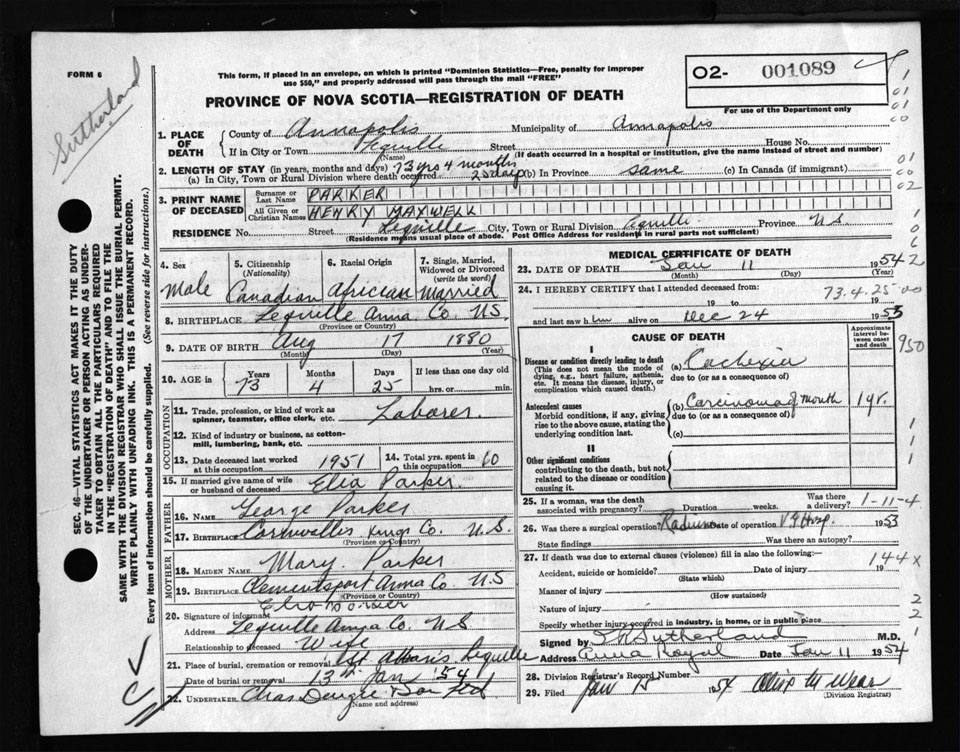 FORM 6
Sutherland
This form, if placed in an envelope, on which is printed "Dominion Statistics—Free, penalty for improper
use $50," and properly addressed will pass through the mail "FREE"
PROVINCE OF NOVA SCOTIA—REGISTRATION OF DEATH
O2- 001089
For use of the Department only
SEC. 46—VITAL STATISTICS ACT MAKES IT THE DUTY
OF THE UNDERTAKER OR PERSON ACTING AS UNDER-
TAKER TO OBTAIN ALL THE PARTICULARS REQUIRED
IN THE "REGISTRATION OF DEATH" AND TO FILE THE
SAME WITH THE DIVISION REGISTRAR WHO SHALL ISSUE THE BURIAL PERMIT.
WRITE PLAINLY WITH UNFADING INK. THIS IS A PERMANENT RECORD.
Every item of information should be carefully supplied. (See reverse side for instructions.)
1. PLACE OF DEATH County of Annapolis Municipality of Annapolis
If in City or Town Lequille Street House No.
(Name) (If death occurred in a hospital or institution, give the name instead of street and number)
2. LENGTH OF STAY (in years, months and days) 73 yrs 4 months
(a) In City, Town or Rural Division where death occurred 25 days (b) In Province same (c) In Canada (if immigrant)
3. PRINT NAME OF DECEASED Surname or Last Name PARKER
All Given or Christian Names HENRY MAXWELL
RESIDENCE No. Street Lequille City, Town or Rural Division Lequille Province N.S.
(Residence means usual place of abode. Post Office Address for residents in rural parts not sufficient)
4. Sex Male
5. Citizenship (Nationality) Canadian
6. Racial Origin African
7. Single, Married, Widowed or Divorced (write the word) Married
8. BIRTHPLACE Lequille Anna. Co. N.S.
(Province or Country)
9. DATE OF BIRTH Aug 17 1880
(Month) (Day) (Year)
10. AGE in Years 73 Months 4 Days 25 If less than one day old hrs. or min.
OCCUPATION
11. Trade, profession, or kind of work as spinner, teamster, office clerk, etc. Laborer.
12. Kind of industry or business, as cotton-mill, lumbering, bank, etc.
13. Date deceased last worked at this occupation 1951 14. Total yrs. spent in this occupation 60
15. If married give name of wife or husband of deceased Elia Parker.
FATHER
16. NAME George Parker
17. BIRTHPLACE Cornwallis Kings Co. N.S.
(Province or Country)
MOTHER
18. MAIDEN NAME Mary Parker
19. BIRTHPLACE Clementsport Anna Co. N.S
(Province or Country)
20. Signature of informant
Address Lequille Anna Co. N.S
Relationship to deceased Wife
21. Place of burial, cremation or removal St Albans Lequille
Date of burial or removal 13th Jan '54
22. UNDERTAKER
(Name and address)
MEDICAL CERTIFICATE OF DEATH
23. DATE OF DEATH Jan 11 1954
(Month) (Day) (Year)
24. I HEREBY CERTIFY that I attended deceased from 73.4.25
19 to 19
and last saw him alive on Dec 24 1953
CAUSE OF DEATH
Approximate interval between onset and death
I
Disease or condition directly leading to death
(This does not mean the mode of dying, e.g., heart failure, asthenia, etc. It means the disease, injury, or complication which caused death.)
(a) Cachexia
due to (or as a consequence of)
Antecedent causes
Morbid conditions, if any, giving rise to the above cause, stating the underlying condition last.
(b) Carcinoma of mouth 1 yr.
due to (or as a consequence of)
(c)
II
Other significant conditions
contributing to the death, but not related to the disease or condition causing it.
25. If a woman, was the death associated with pregnancy? Duration weeks. Was there a delivery? 1-11-4
26. Was there a surgical operation? Radium Date of operation V.G. Hosp. 1953
State findings Was there an autopsy?
27. If death was due to external causes (violence) fill in also the following:—
Accident, suicide or homicide? Date of injury 19 144 x
(State which)
Manner of injury
(How sustained)
Nature of injury
Specify whether injury occurred in industry, in home, or in public place
Signed by Sutherland M.D.
Address Anna Royal Date Jan 11 1954
28. Division Registrar's Record Number
29. Filed Jan 15 1954
(Division Registrar)
950